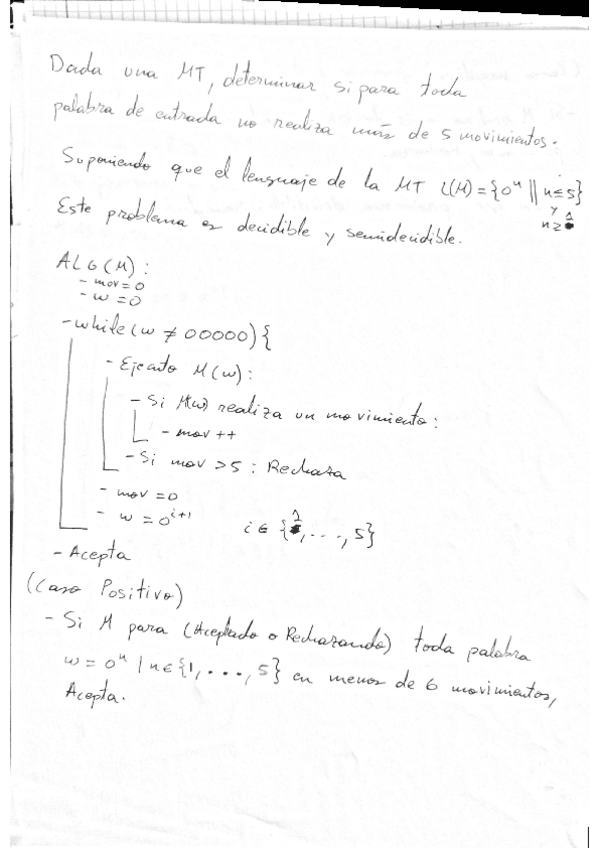 Dada una MT, determinar si para toda
palabra de entrada no realiza más de 5 movimientos.
Suponiendo que el lenguaje de la MT L(M) = {0ⁿ || n ≤ 5}
y
n ≥ 1
Este problema es decidible y semidecidible.
ALG(M):
- mov = 0
- w = 0
- while (w ≠ 00000) {
- Ejecuto M(w):
- Si M(w) realiza un movimiento:
- mov ++
- Si mov > 5 : Rechaza
- mov = 0
- w = 0ⁱ⁺¹ i ∈ {1, ..., 5}
- Acepta
(Caso Positivo)
- Si M para (Aceptado o Rechazando) toda palabra
w = 0ⁿ | n ∈ {1, ..., 5} en menos de 6 movimientos,
Acepta.